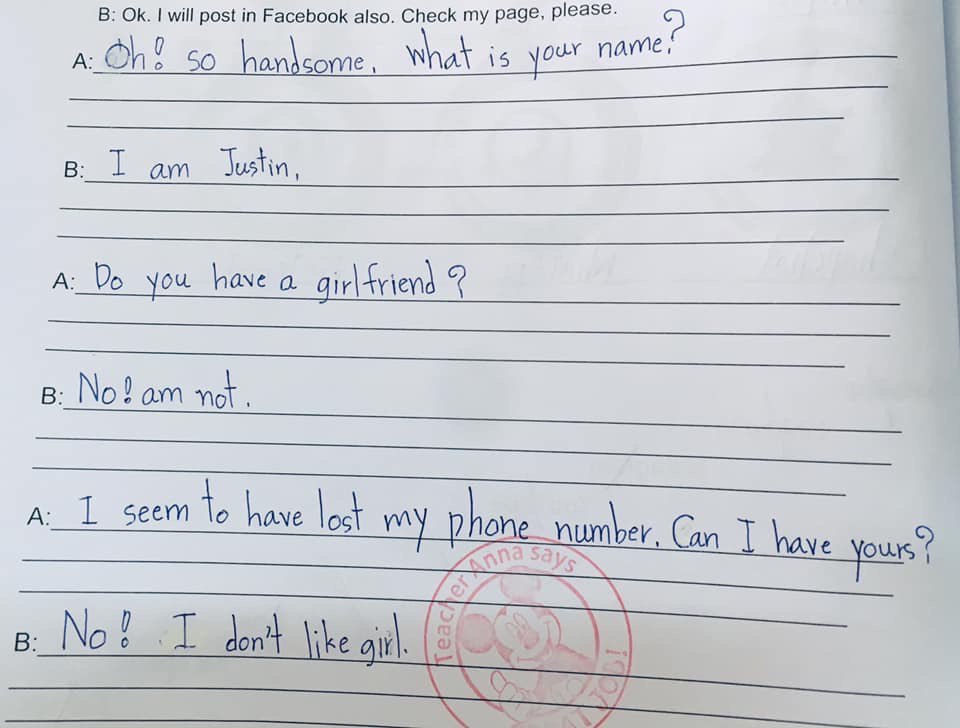 B: Ok. I will post in Facebook also. Check my page, please.
A: Oh! so handsome. What is your name?
B: I am Justin.
A: Do you have a girlfriend?
B: No! am not.
A: I seem to have lost my phone number. Can I have yours?
Teacher Anna says
B: No! I don't like girl.
JOB!